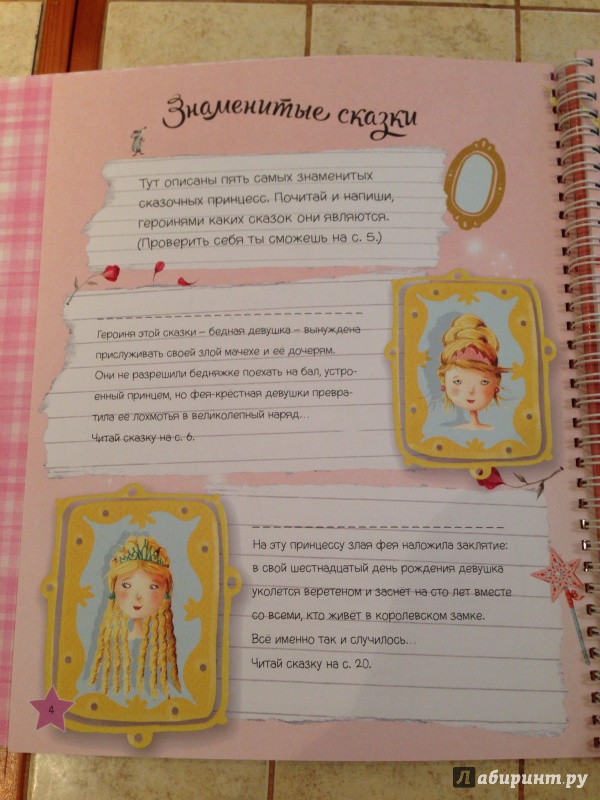 Знаменитые сказки
Тут описаны пять самых знаменитых
сказочных принцесс. Почитай и напиши,
героинями каких сказок они являются.
(Проверить себя ты сможешь на с. 5.)
Героиня этой сказки – бедная девушка – вынуждена
прислуживать своей злой мачехе и её дочерям.
Они не разрешили бедняжке поехать на бал, устро-
енный принцем, но фея-крёстная девушки превра-
тила её лохмотья в великолепный наряд...
Читай сказку на с. 6.
На эту принцессу злая фея наложила заклятие:
в свой шестнадцатый день рождения девушка
уколется веретеном и заснёт на сто лет вместе
со всеми, кто живёт в королевском замке.
Всё именно так и случилось...
Читай сказку на с. 20.
4
Лабиринт.ру